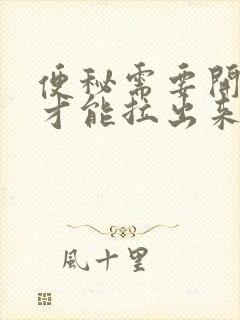 便秘需要開
才能拉出來
風十里